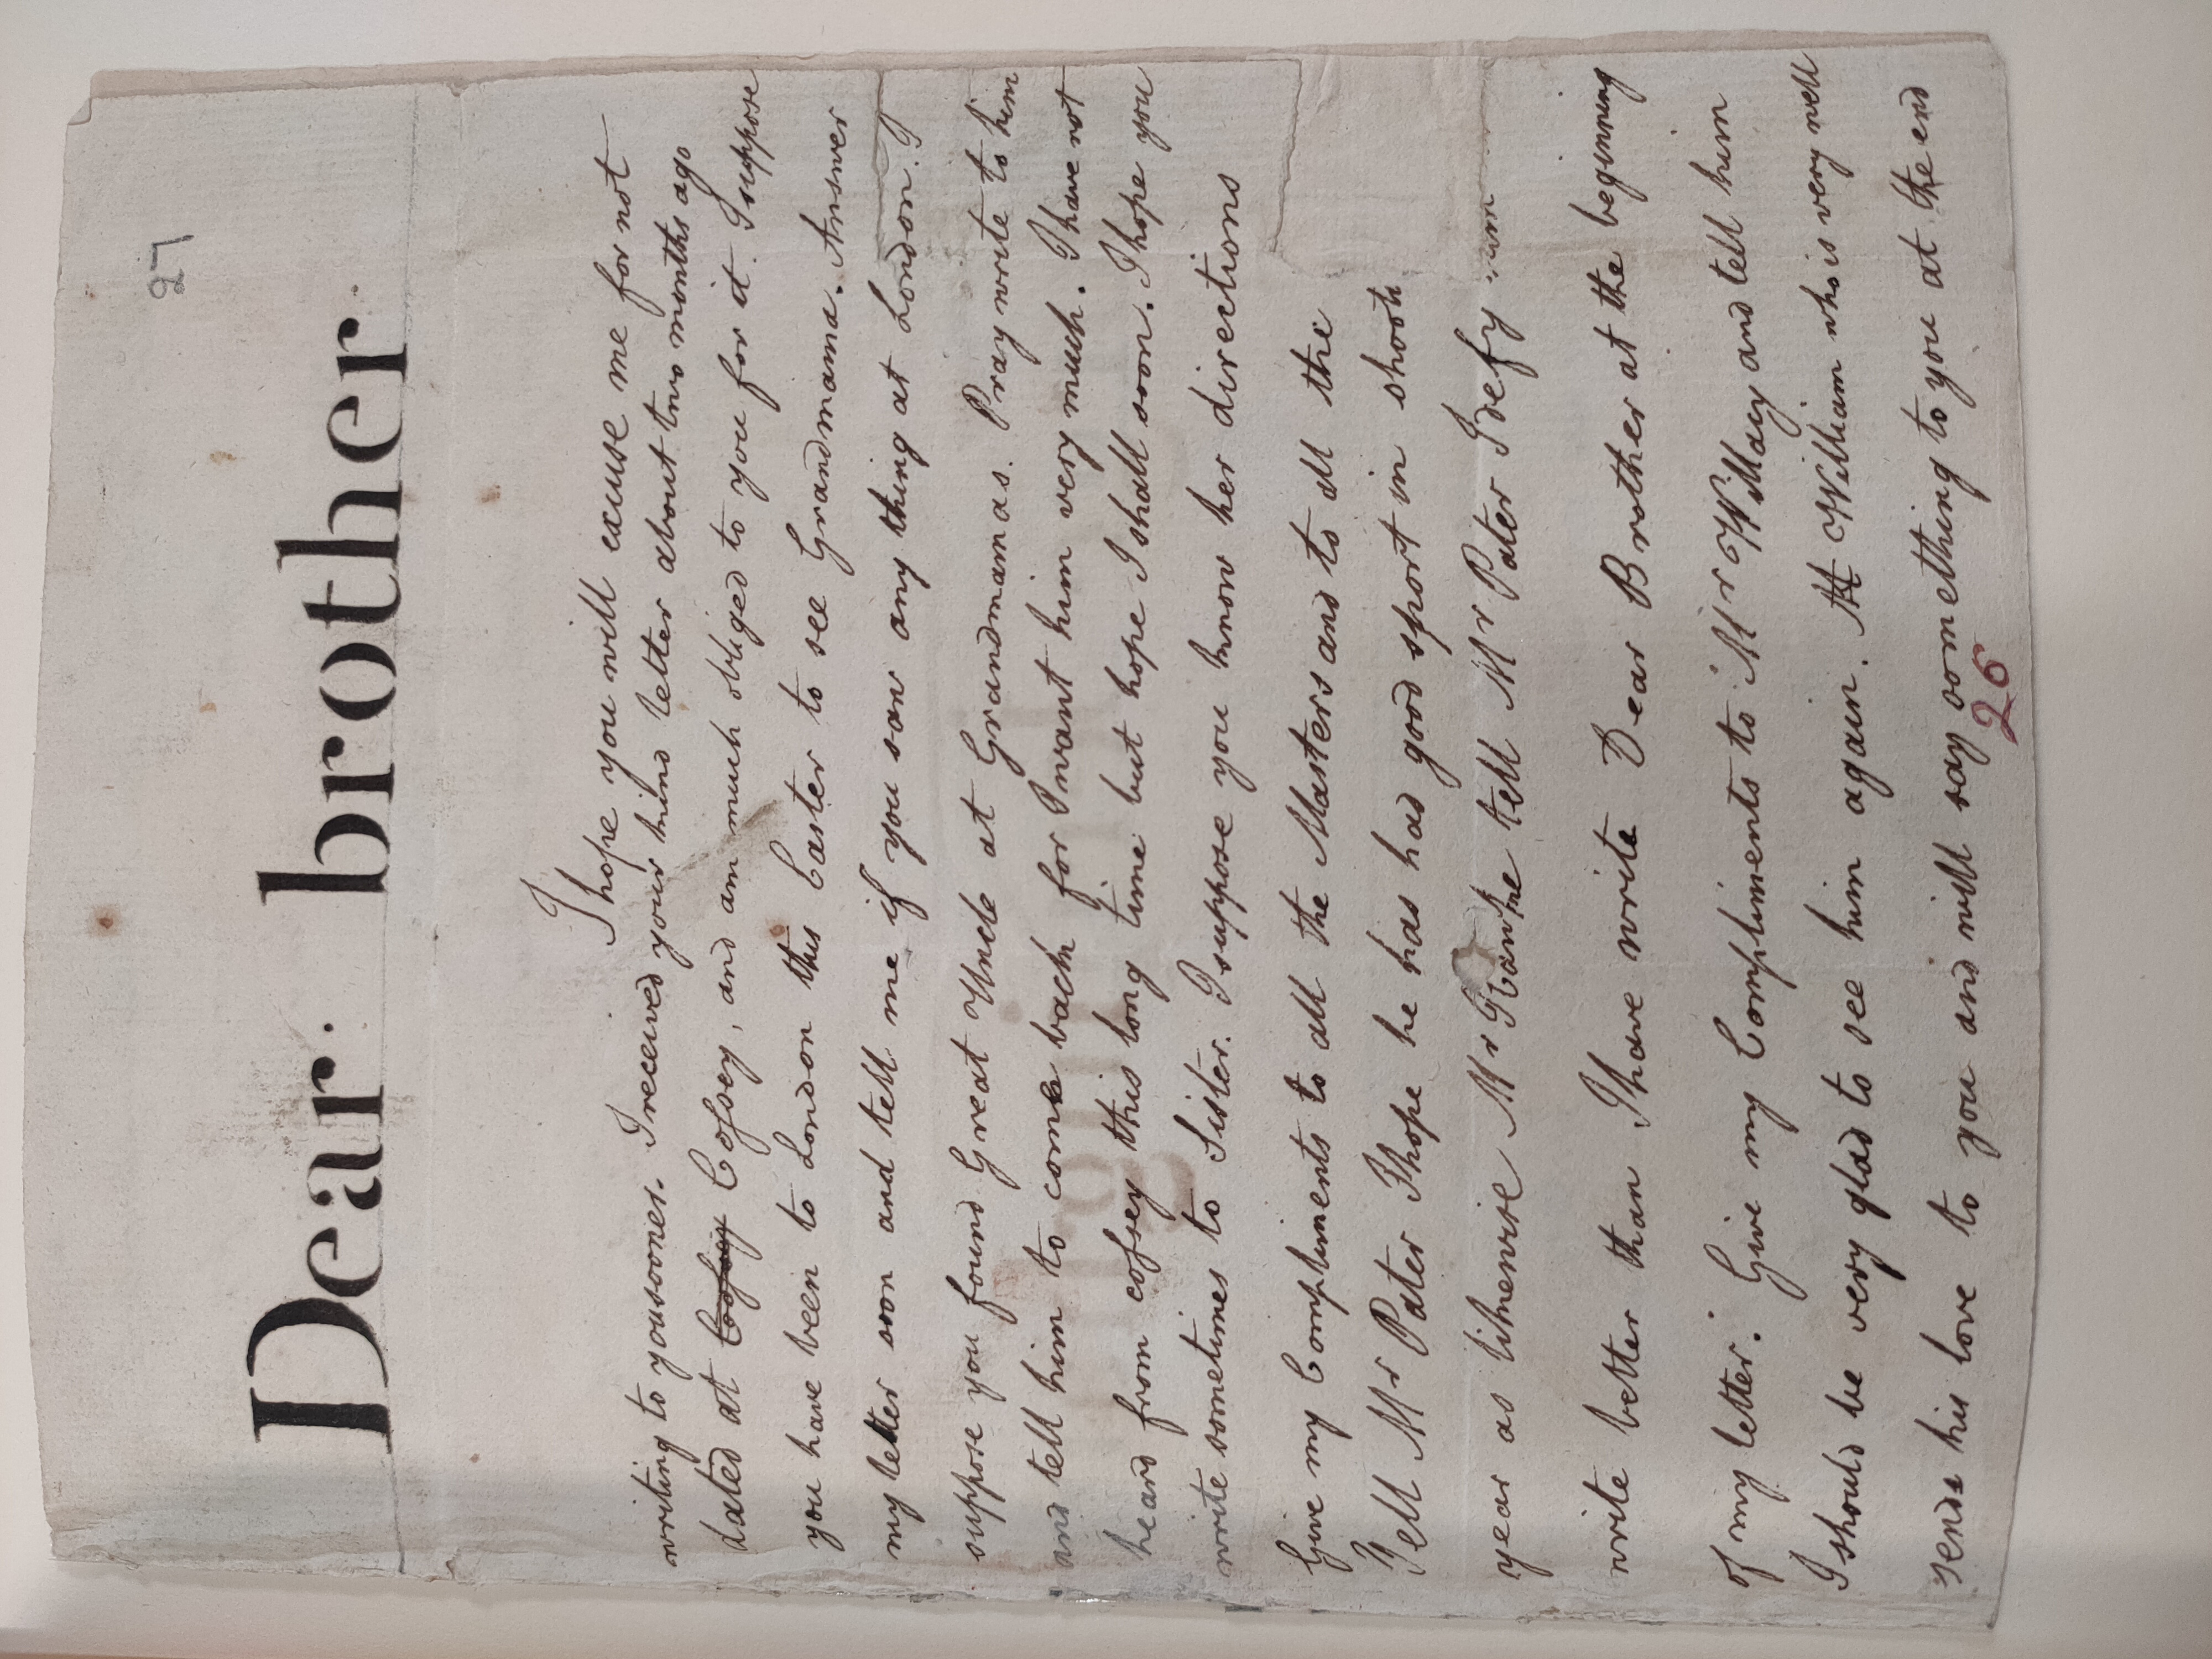 27
Dear. brother.
I hope you will excuse me for not
writing to you sooner. I received your kind letter about two months ago
dated at Cofsey, and am much obliged to you for it. I suppose
you have been to London this Easter to see Grandmama. Answer
my letter soon and tell me if you saw any thing at London. I
suppose you found Great Uncle at Grandmamas. Pray write to him
and tell him to come back for I want him very much. I have not
heard from cofsey this long time but hope I shall soon. I hope you
write sometimes to Sister. I suppose you know her directions
Give my Compliments to all the Masters and to all the
Tell Mr Pater I hope he has had good sport in shoot
year as likewise Mr tell Mr Pater I defy
write better than I have write Dear Brother at the beginning
of my letter. Give my Compliments to Mr Willacy and tell him
I should be very glad to see him again. William who is very well
sends his love to you and will say something to you at the end
26